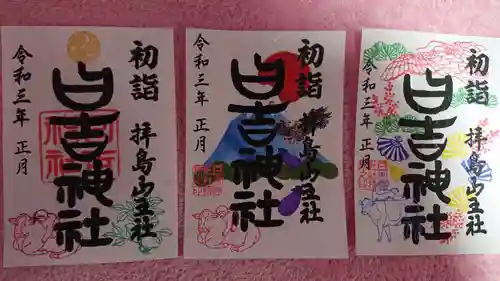 初詣 拝島山王社
日吉神社
令和三年 正月
初詣 拝島山王社
日吉神社
令和三年 正月
初詣 拝島山王社
日吉神社
令和三年 正月